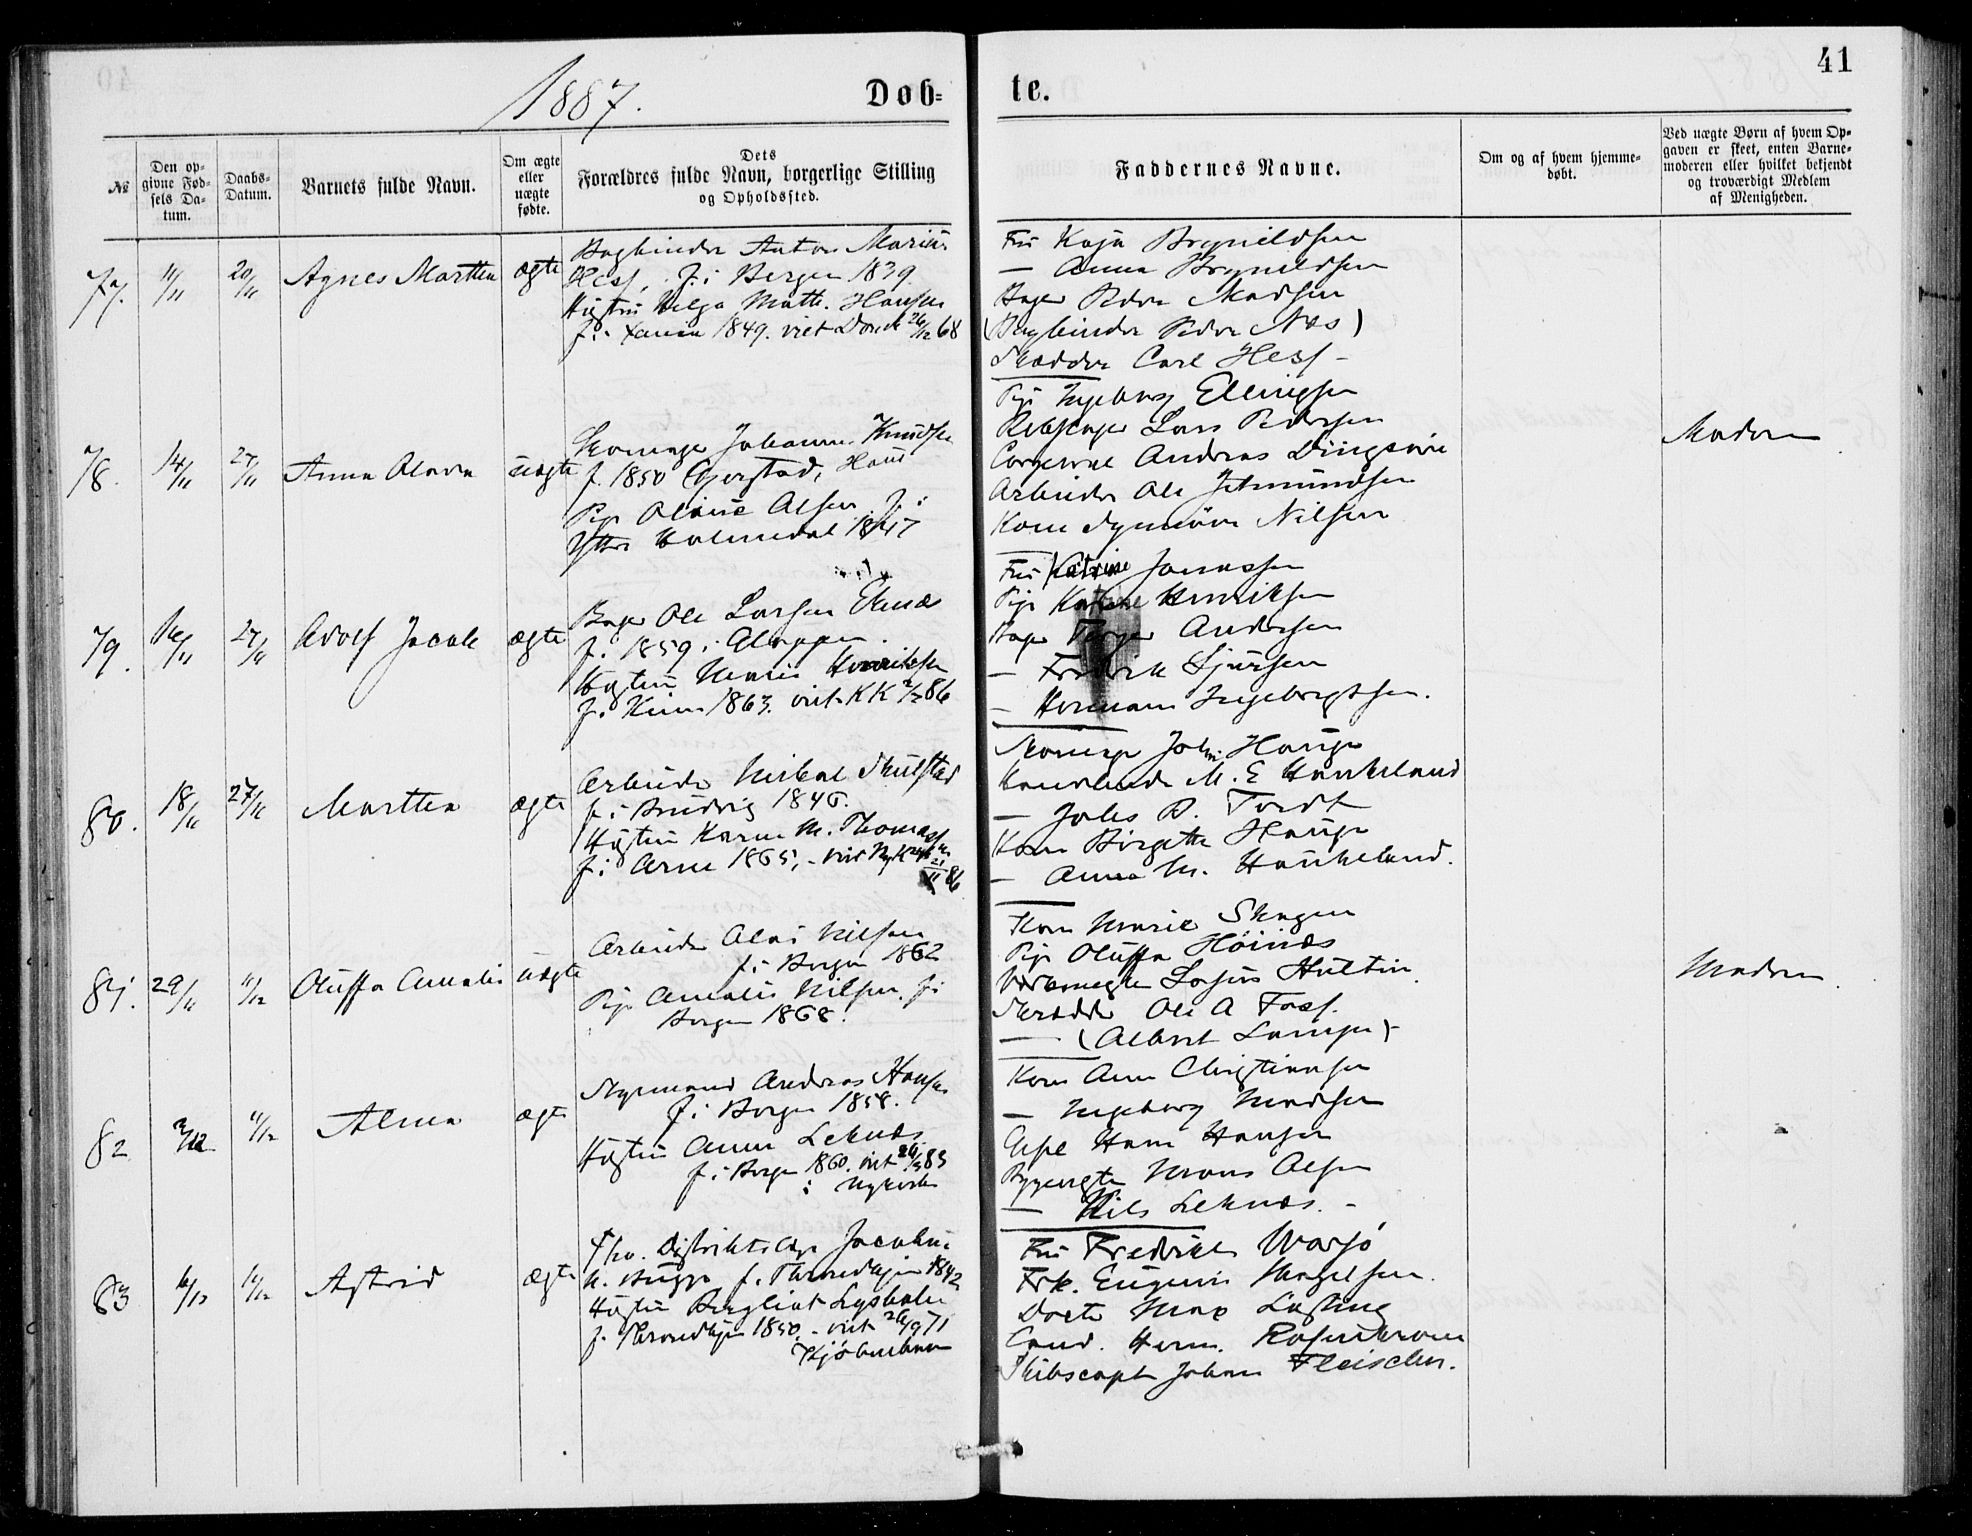 1887.
Døb-
te.
41
№
Den op-
givne Fød-
sels Da-
tum.
Daabs-
Datum.
Barnets fulde Navn.
Om ægte
eller
uægte
fødte.
Dets
Forældres fulde Navn, borgerlige Stilling
og Opholdssted.
Faddernes Navne.
Om og af hvem hjemme-
døbt.
Ved uægte Børn af hvem Op-
gaven er skeet, enten Barne-
moderen eller hvilket bekjendt
og troværdigt Medlem
af Menigheden.
77. 11/11 20/11 Agnes Marthea ægte
Bogbinder Anton Marius
Hess, f. i Bergen 1839
Hustru Helga Math. Hansen
f. i 1849. viet Domk 26/12 68
Fru Kaja Brynildsen
— Anna Brynildsen
Bager Peder Madsen
(Bogbinder Peder Næs)
Carl Hess -
78. 14/11 27/11 Anna Olava uægte
Skomager Johannes Knudsen
f. 1850 Gjerstad, Haus
Pige Oline Olsen f. i
Yttre Holmedal 1847
Pige Ingeborg Ellingsen
Rebslager Lars Pedersen
Andreas Dingsøir
Arbeider Ole
Kone Synnøve Nilsen
Moderen
79. 16/11 27/11 Adolf Jacob ægte
Bager Ole Larsen Eknæs
f. i 1859 i Gloppen.
Hustru Marie Henriksen
f. i Kinn 1863. viet KK 86
Fru Katrine Jonassen
Pige Katrine Henriksen
Bager Andersen
— Fredrik Sjursen
— Herman Ingebrigtsen.
80. 18/11 27/11 Marthea ægte
Arbeider Mikal
f. i Bruvig 1846.
Hustru Karen M. Thomassen
f. i Arne 1865, - viet NyK 21/11 86
Skomager Johs. Hauge
Handlende M. E Haukeland
— Johs B. Tvedt
Kone Birgitte Hauge
— Anna M. Haukeland.
81. 29/11 11/12 Oluffa Amalie uægte
Arbeider Olai Nilsen
f. i Bergen 1862
Pige Amalie Nilsen. f. i
Bergen 1868.
Kone Marie Skagen
Pige Oluffa Høinæs
Hultin
Skrædder Ole A Foss.
— (Albert Lampe)-
Moderen
82 2/12 11/12 Alma ægte
Styrmand Andreas Hansen
f. i Bergen 1858.
Hustru Anna Leknæs
f. i Bergen 1860. viet 83
i Nykirken
Kone Anne Christiansen
— Ingeborg Madsen
Hans Hansen
Mons Olsen
— Nils Leknæs. -
83 6/12 11/12 Astrid ægte
Fhv. Distriktslæge Jacob
M. Bugge f. Throndhjem 1842
Hustru Bergliot Lysholm
f. Throndhjem 1850, - viet 26/9 71
Kjøbenhavn
Fru Fredrikke
Frk. Eugenie Magelsen.
Doctor Max Lasting
Cand. Herm. Rosenkrone
Skibscapt Johan Fleischer.